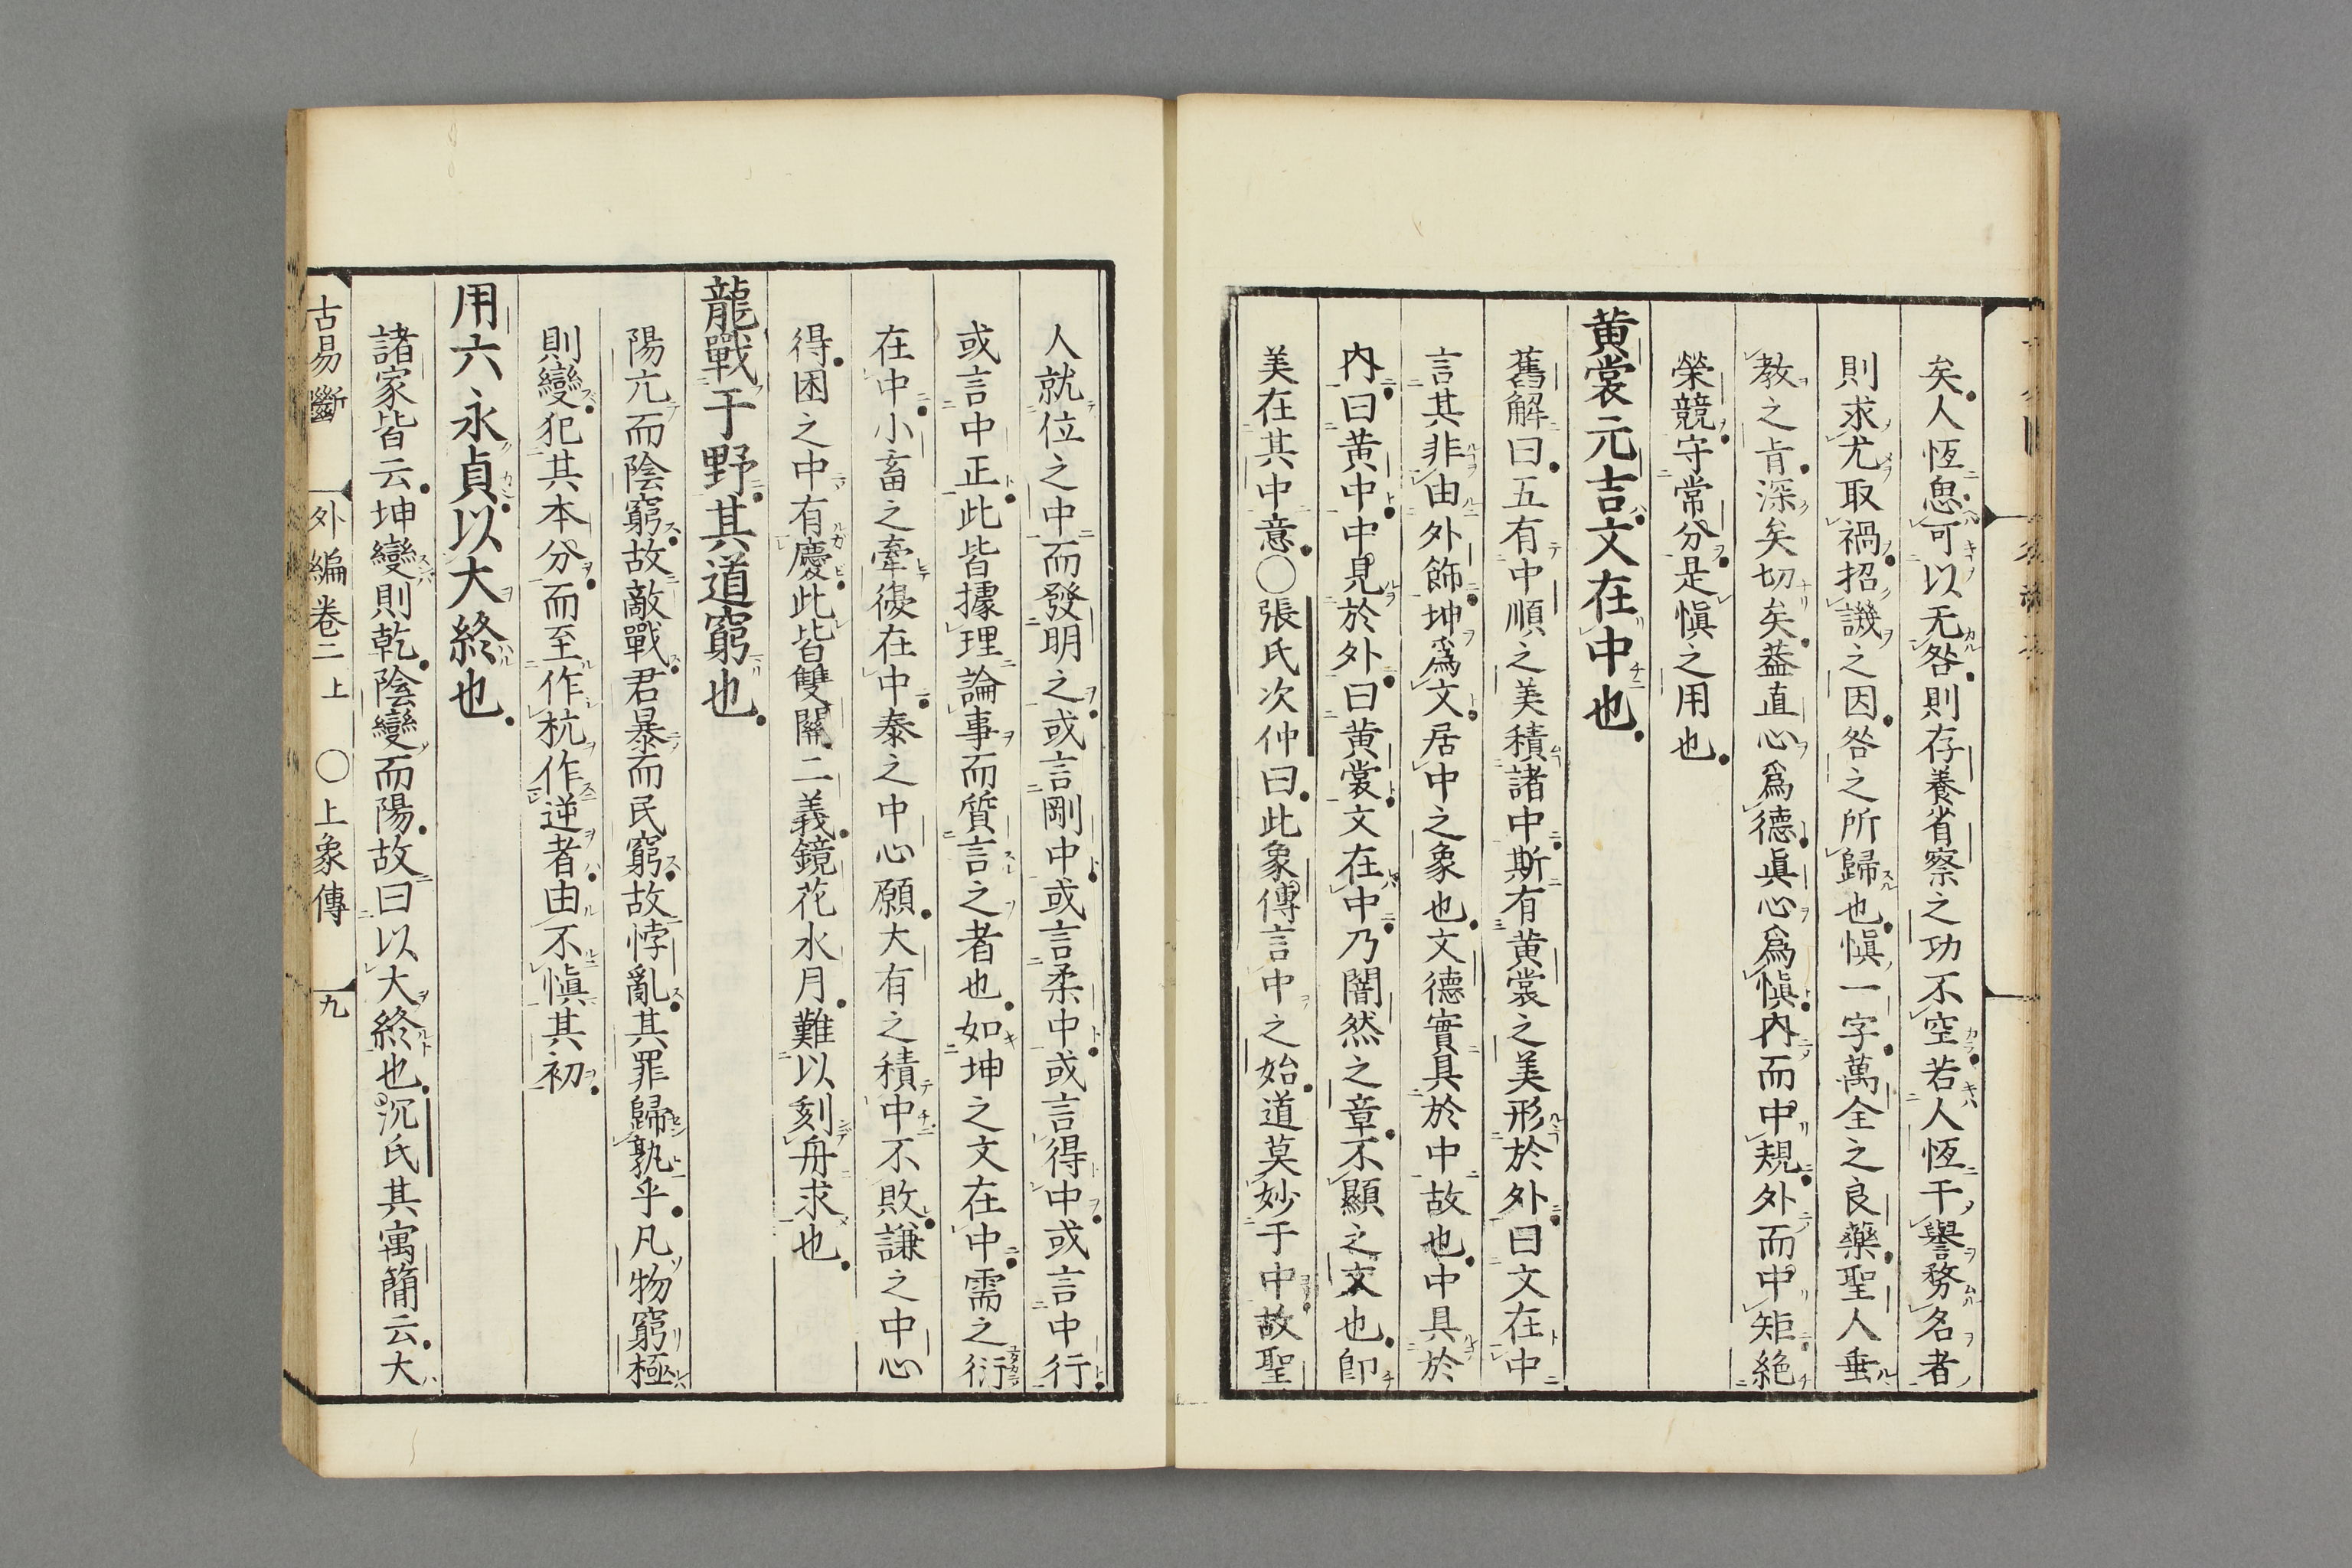 矣人恆思可以无咎則存養省察之功不空若人恆干譽務名者
則求尤取禍招譏之因咎之所歸也愼一字萬全之良藥聖人垂
教之旨深矣切矣葢直心爲德眞心爲愼内而中規外而中矩絶
榮競守常分是愼之用也
黄裳元吉文在中也
舊解曰五有中順之美積諸中斯有黄裳之美形於外曰文在中
言其非由外飾坤爲文居中之象也文德實具於中故也中具於
内曰黄中中見於外曰黄裳文在中乃闇然之章不顯之文也卽
美在其中意〇張氏次仲曰此象傳言中之始道莫妙于中故聖
人就位之中而發明之或言剛中或言柔中或言得中或言中行
或言中正此皆據理論事而質言之者也如坤之文在中需之衍
在中小畜之牽復在中泰之中心願大有之積中不敗謙之中心
得困之中有慶此皆雙關二義鏡花水月難以刻舟求也
龍戰于野其道窮也
陽亢而陰窮故敵戰君暴而民窮故悖亂其罪歸孰乎凡物窮極
則變犯其本分而至作杭作逆者由不愼其初
用六永貞以大終也
諸家皆云坤變則乾陰變而陽故曰以大終也沉氏其寓簡云大
古易斷 外編卷二上 〇上象傳 九